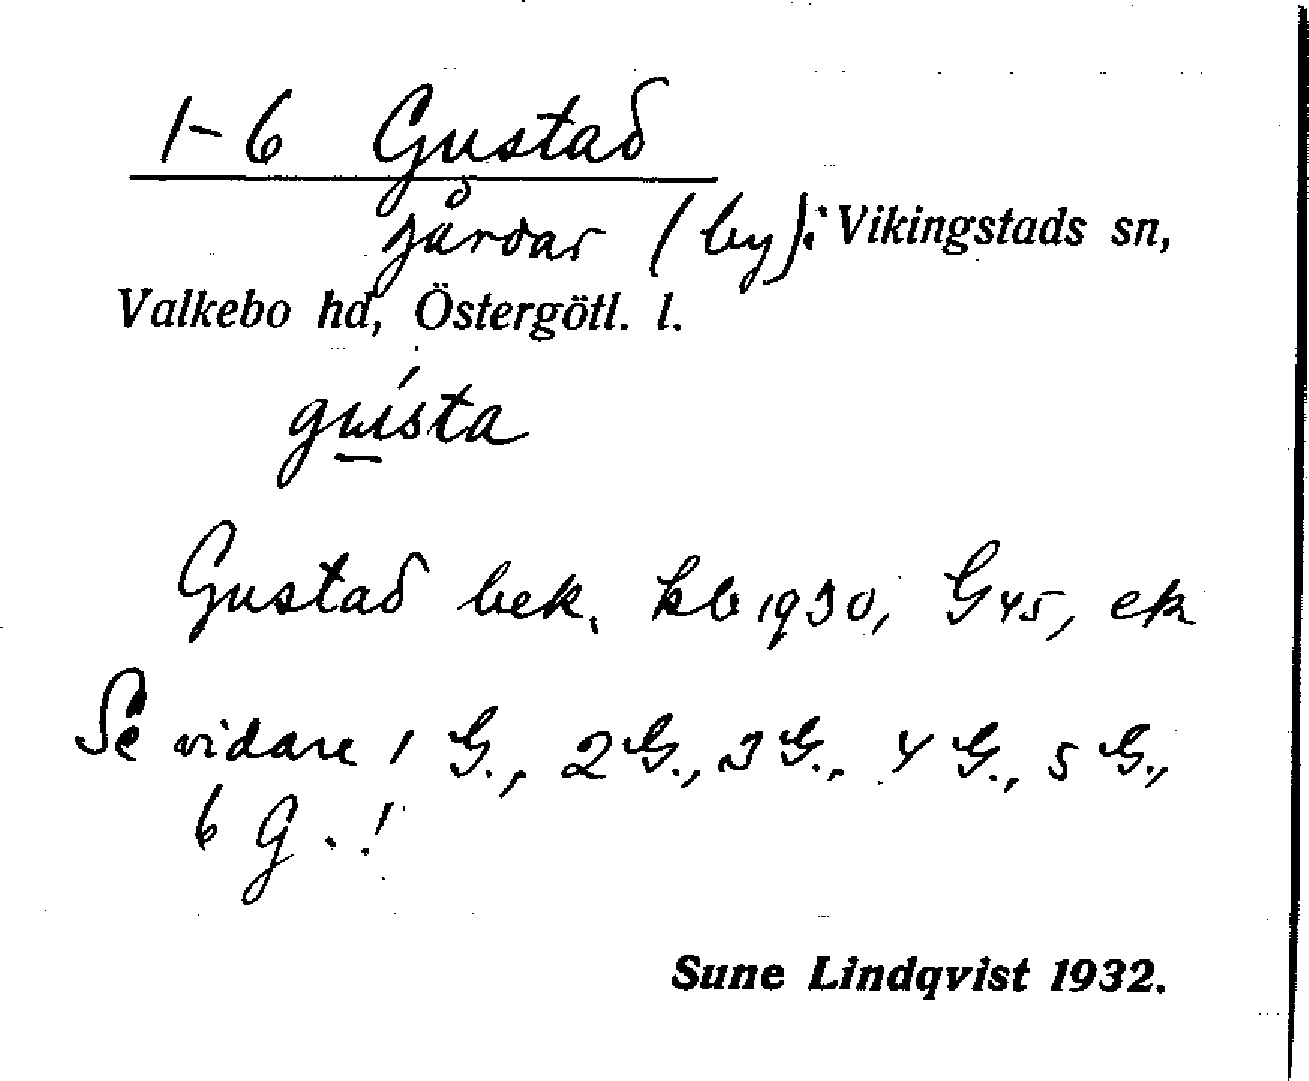 1-6 Gustad
gårdar (by) i Vikingstads sn,
Valkebo hd, Östergötl. l.
guísta
Gustad bek. kb 1930, G 45, ek
Se vidare 1 G., 2 G., 3 G., 4 G., 5 G.,
6 G.!
Sune Lindqvist 1932.